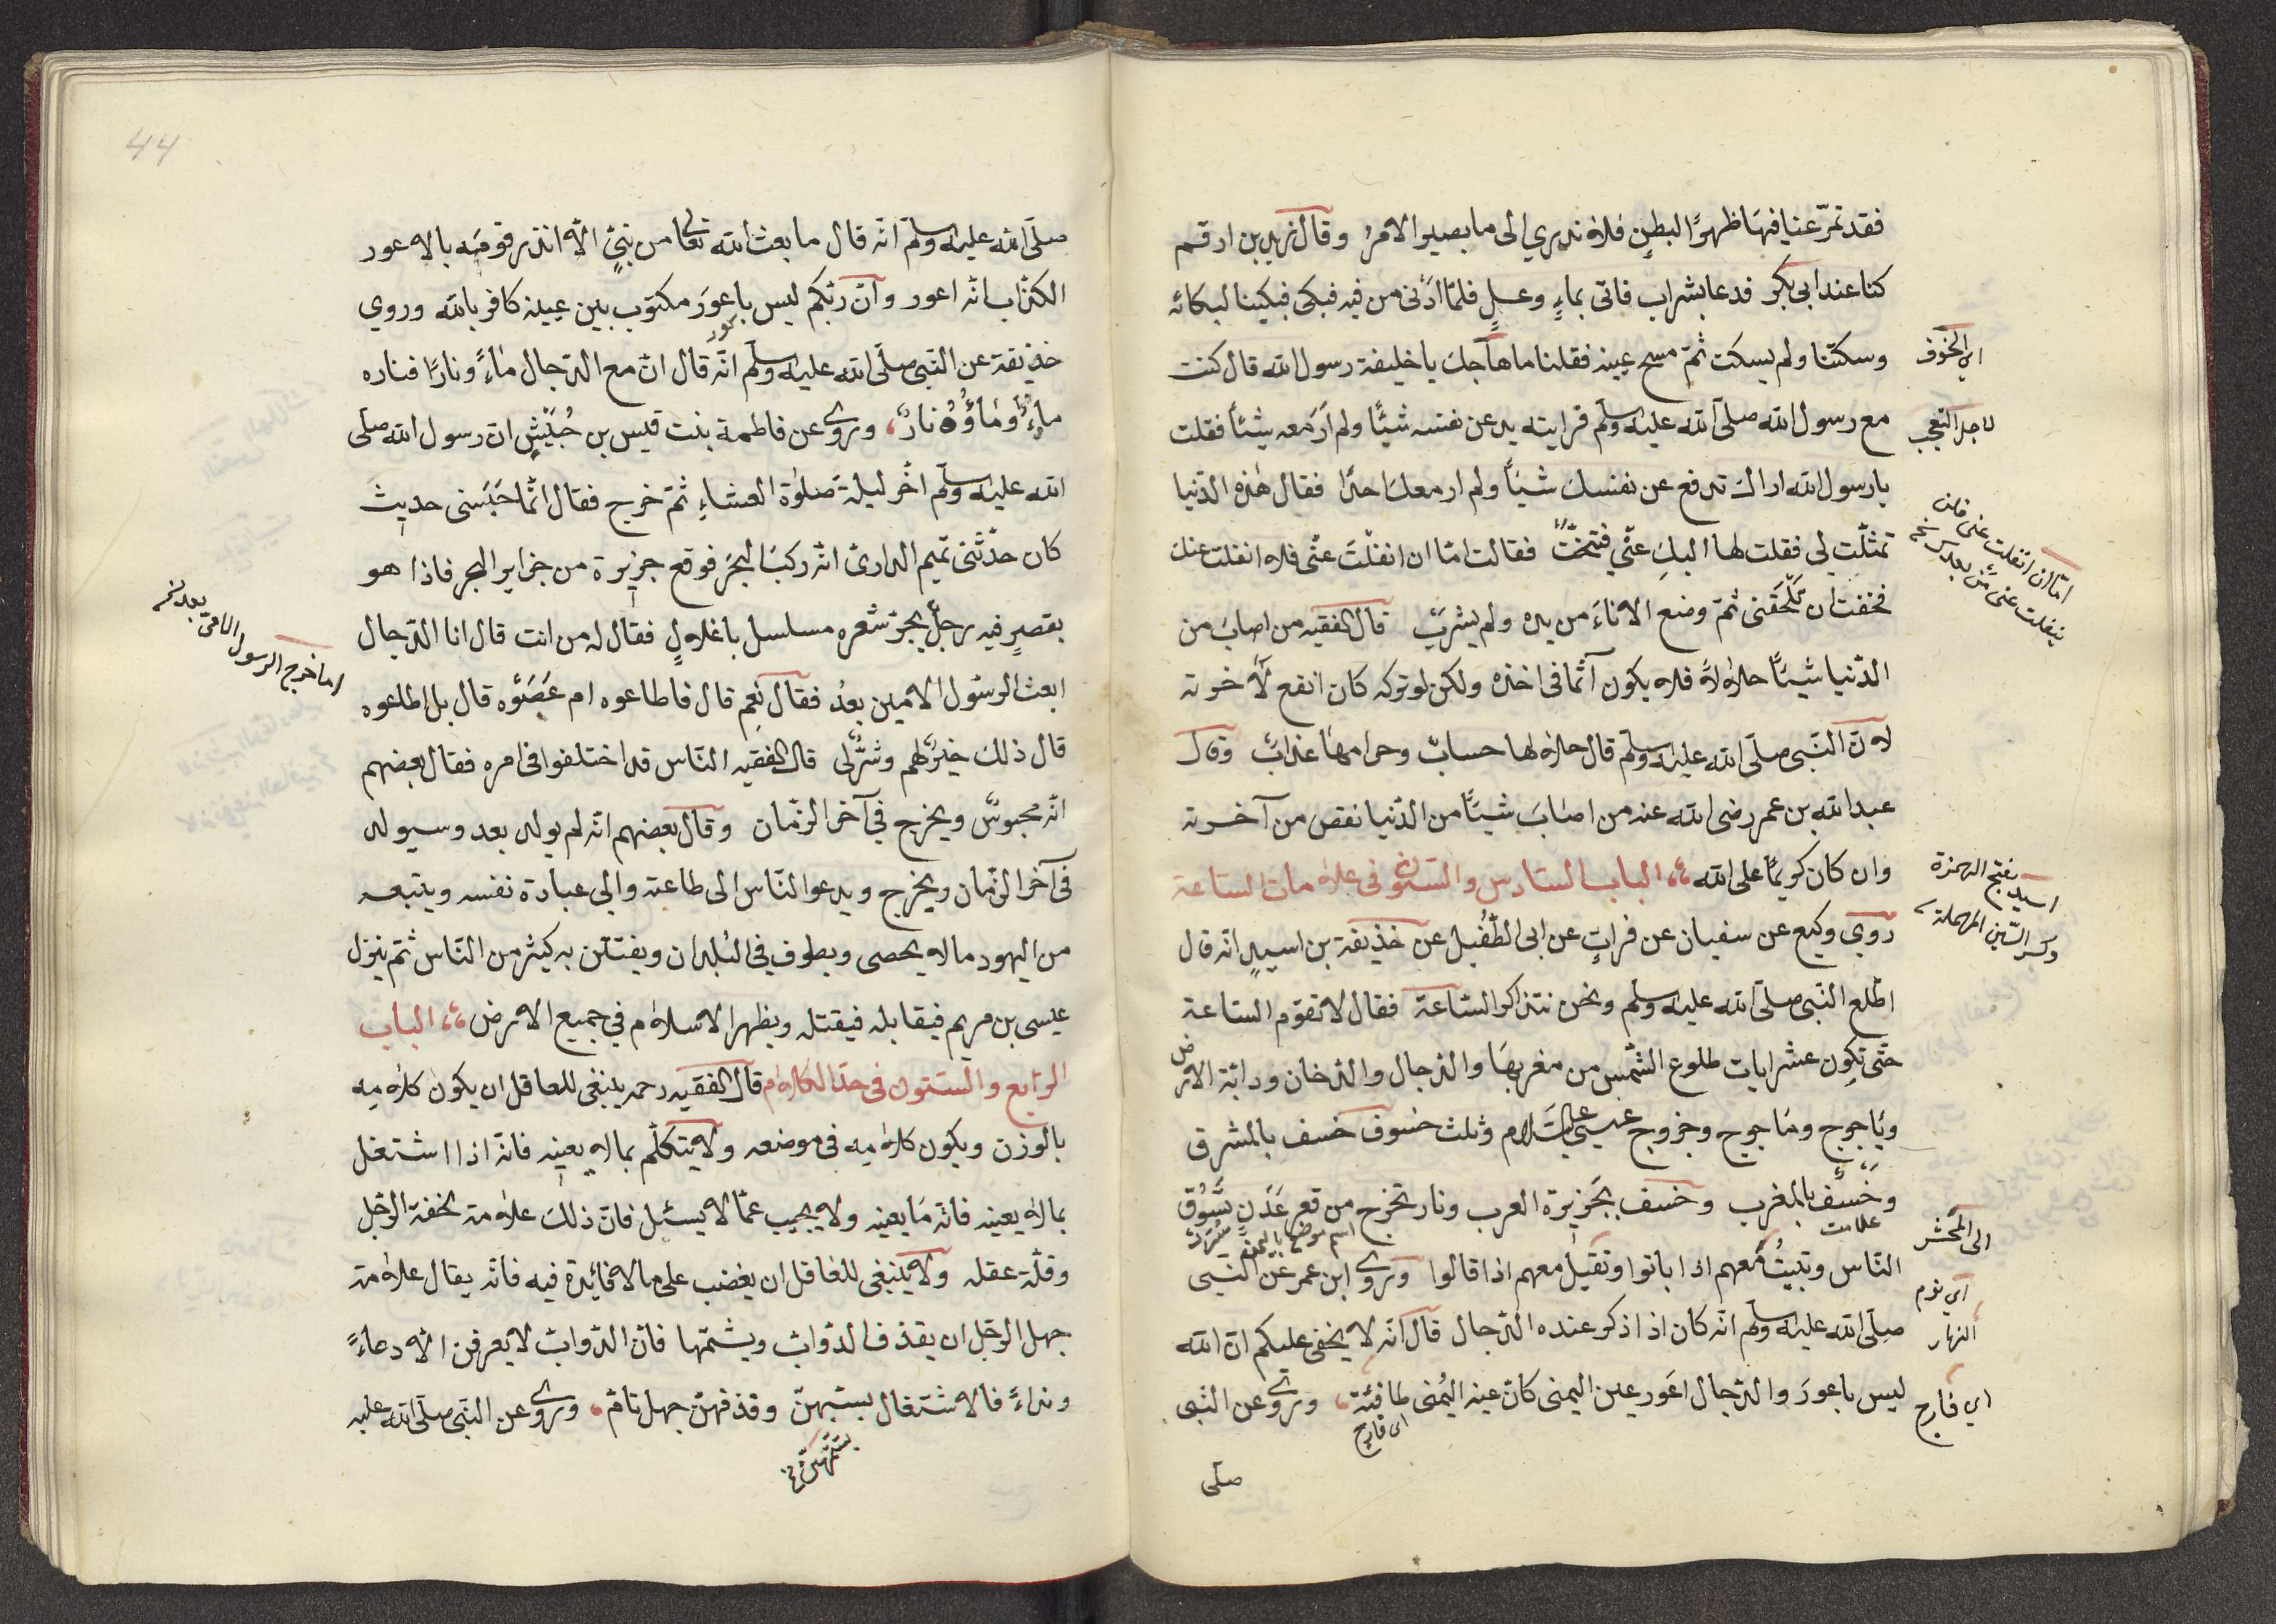 فقد تمرّغنا فيها ظهرًا لبطنٍ فلا ندري الى ما يصير الامرُ وقال زيد بن ارقم
كنا عند ابى بكر فدعا بشراب فاتى بماءٍ وعسلٍ فلمّا ادنى من فيه فبكى فبكينا لبكائه
وسكتنا ولم يسكت ثمّ مسح عينه فقلنا ما هاجك يا خليفة رسول الله قال كنت
اي الخوف
مع رسول الله صلى الله عليه وسلم فرايته يدفع عن نفسه شيئًا ولم ارَ معه شيئًا فقلت
لاجل التعجب
يا رسول الله اراك تدفع عن نفسك شيئًا ولم ار معك احدًا فقال هذه الدّنيا
تمثّلت لي فقلت لها اليكِ عنّي فتنحّت فقالت امّا ان انفلتَ عنّى فلا انفلت عنك
اما ان انفلت عنى فلن
ينفلت عنى من بعدك نخ
فخفت ان تلحقنى ثمّ وضع الاناءَ من يده ولم يشرب قال الفقيه من اصاب من
الدّنيا شيئًا حلالاً فلا يكون آثمًا فى اخذه ولكن لو تركه كان انفع لآخرته
لانّ النّبى صلى الله عليه وسلم قال حلالها حسابٌ وحرامها عذابٌ وقال
عبد الله بن عمر رضى الله عنه من اصابَ شيئًا من الدّنيا نقص من آخرته
وان كان كريمًا على الله الباب السادس والستون فى علامات الساعة
اسيد بفتح الهمزة
وكسر السّين المهملة
روي وكيع عن سفيان عن فراتٍ عن ابى الطّفيل عن حذيفة بن اسيدٍ انه قال
اطّلع النّبى صلى الله عليه وسلم ونحن نتذاكر السّاعة فقال لا تقوم السّاعة
حتّى تكون عشر ايات طلوع الشّمس من مغربها والدّجال والدّخان ودابّة الارض
وياجوج وماجوج وخروج عيسى عليه السّلام وثلث خسوف خسف بالمشرق
وخسف بالمغرب وخسف بجزيرة العرب ونار تخرج من قعر عدن تسوق
علامت
اسم موضع باليمن
الى المحشر
النّاس وتبيتُ معهم اذا باتوا وتقيل معهم اذا قالوا وروى ابن عمر عن النّبى
اى نوم
النهار
صلى الله عليه وسلم انّه كان اذا ذكر عنده الدّجال قال انّه لا يخفى عليكم انّ الله
ليس باعورَ والدّجال اعور عين اليمنى كانّ عينه اليُمنى طافئة وروى عن النّبى
اي فارج
اى فارج
صلى
44
صلّى الله عليه وسلم انّه قال ما بعث الله تعالى من نبيٍّ الّا انذر قومَه بالاعور
الكذّاب انّه اعور وانّ ربّكم ليس باعورَ مكتوب بين عينه كافر بالله وروي
حذيفة عن النّبى صلّى الله عليه وسلم انّه قال انّ مع الدّجال ماءً ونارًا فناره
ماءٌ وماؤُه نارٌ وروى عن فاطمة بنت قيس بن حُبَيْشٍ ان رسول الله صلى
الله عليه وسلم اخّر ليلة صلوة العشاءِ ثمّ خرج فقال انّما حَبَسنى حديث
كان حدّثنى تميم الدارىّ انّه ركب البحر فوقع جزيرة من جزاير البحر فاذا هو
بقصرٍ فيه رجلٌ يجرّ شعره مسلسل باغلالٍ فقال له من انت قال انا الدّجال
ابعث الرسُول الامين بعدُ فقال نعم قال فاطاعوه ام عَصَوْه قال بل اطاعوه
اما خرج الرسول الامى بعد نخ
قال ذلك خيرٌ لهم وشرٌّ لى قال الفقيه النّاس قد اختلفوا فى امره فقال بعضهم
انّه محبوسٌ ويخرج فى آخر الزّمان وقال بعضهم انّه لم يولد بعد وسيولد
فى آخر الزّمان ويخرج ويدعو النّاس الى طاعته والى عبادة نفسه ويتبعه
من اليهود مالا يحصى ويطوف فى البُلدان ويفتتن به كثير من النّاس ثمّ ينزل
عيسى بن مريم فيقابله فيقتله ويظهر الاسلام في جميع الارض الباب
الرّابع والستون فى حدّ الكلام قال الفقيه رحمه ينبغى للعاقل ان يكون كلامه
بالوزن ويكون كلامه فى موضعه ولا يتكلّم بمالا يعينه فانّه اذا اشتغل
بمالا يعينه فاته ما يعينه ولا يجيب عمّا لا يسئل فانّ ذلك علامة لخفة الرّجل
وقلّة عقله ولا ينبغى للعاقل ان يغضب على مالا فائدة فيه فانّه يقال علامة
جهل الرّجل ان يقذف الدّوابّ ويشتمها فانّ الدّوابّ لا يعرفن الّا دعاءً
ونداءً فالاشتغال بسبّهنّ وقذفهنّ جهل تامّ وروى عن النّبى صلى الله عليه
بشتمهن نخ